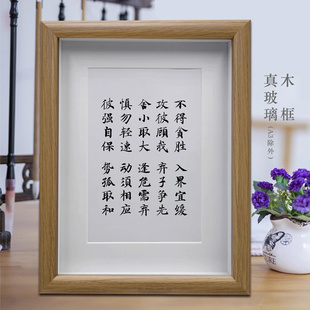 木框
真玻璃(A3除外)
不得貪胜 入界宜緩
攻彼顧我 弃子争先
舍小取大 逢危需弃
慎勿轻速 动須相应
彼强自保 势孤取和